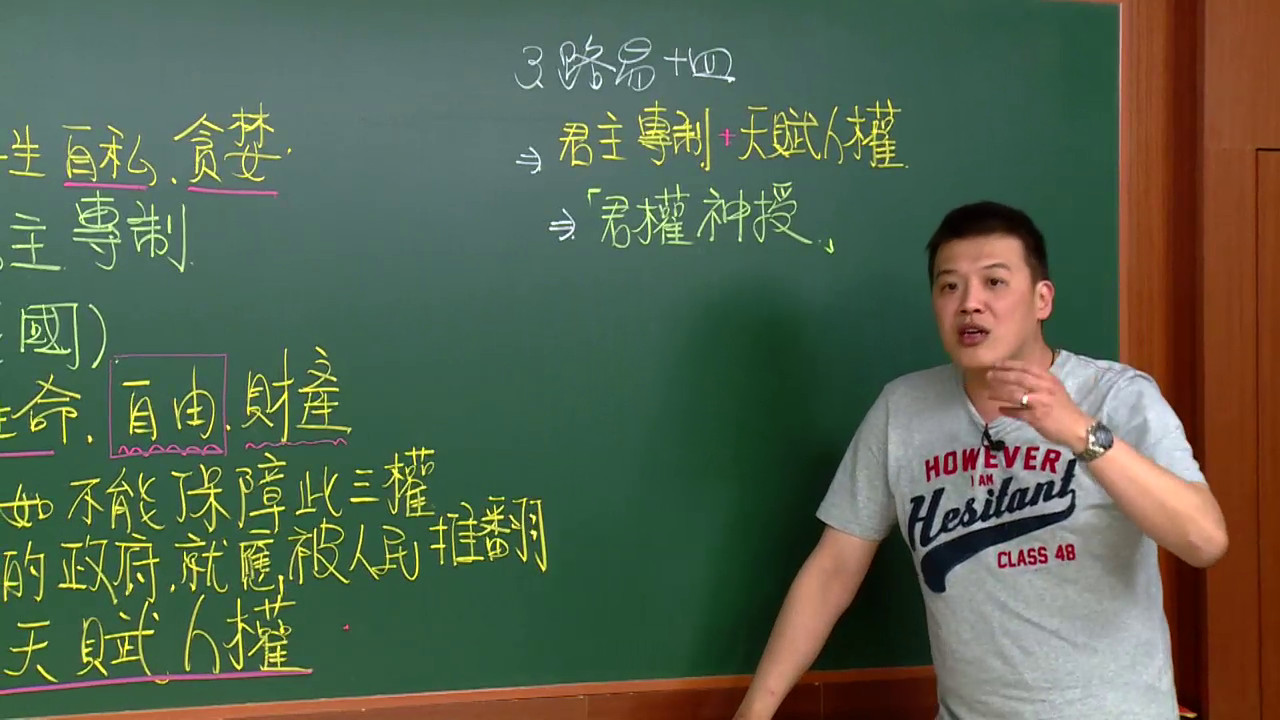 生自私、貪婪.
主專制
國)
命.自由.財產
如不能保障此三權
的政府.就應被人民推翻
天賦人權
3.路易十四
⇒君主專制+天賦人權
⇒「君權神授」
HOWEVER
I AM
Hesitant
CLASS 48